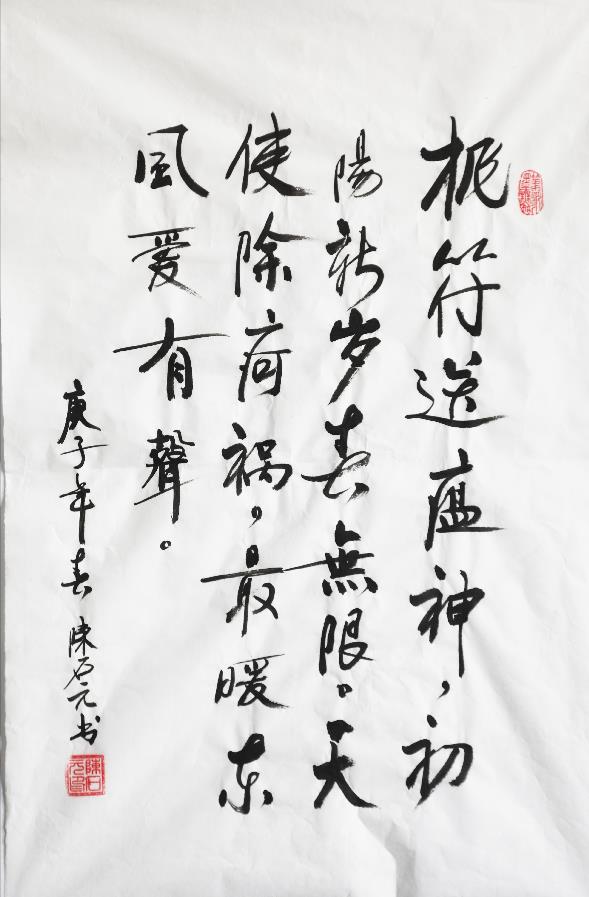 桃符送瘟神，初
陽新岁春無限。天
使除疴祸，最暖东
風爱有聲。
庚子年春 陳石元书